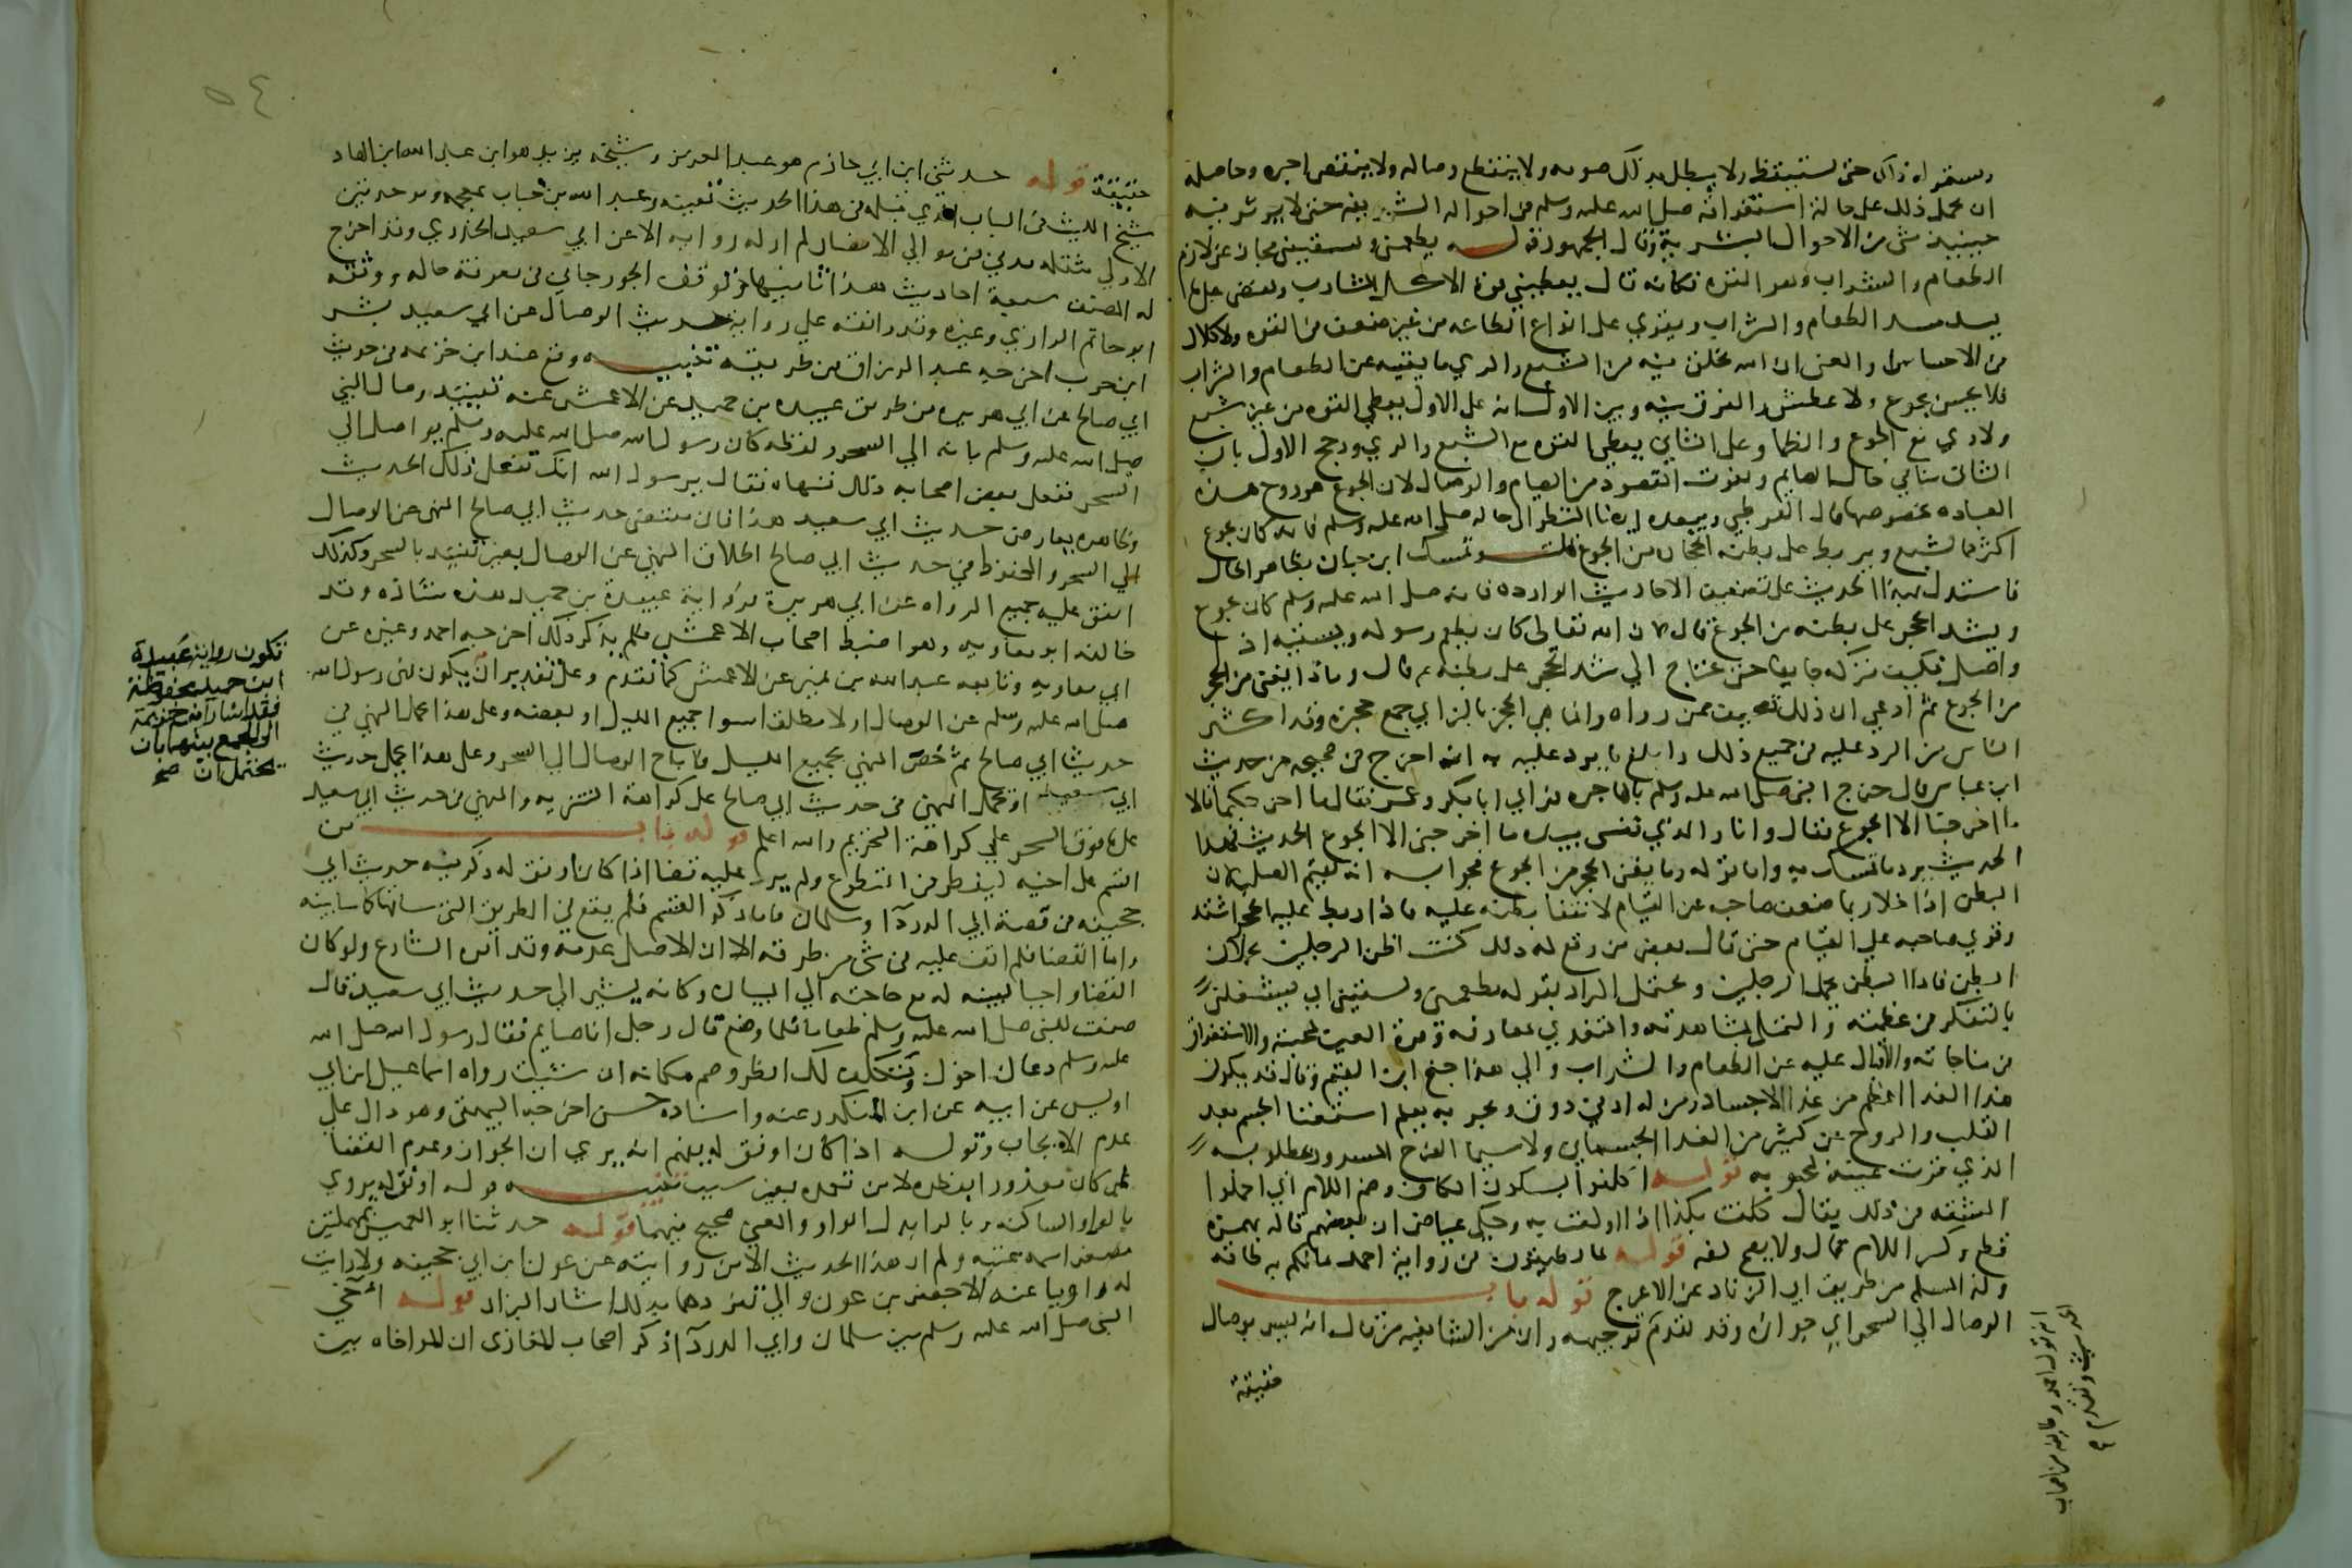 ويستمر له ذلك حتى يستيقظ ولا يبطل بذلك صومه ولا ينقطع وصاله ولا ينقص اجره وحاصله
ان يحمل ذلك على حالة استغراقه صلى الله عليه وسلم في احواله الشريفة حتى لا يوثر فيه
حينيذ شي من الاحوال البشرية وقال الجمهور قوله يطعمني ويسقيني مجاز عن لازم
الطعام والشراب وهو القوة فكانه قال يعطيني قوة الاكل الشارب ويفيض علي ما
يسد مسد الطعام والشراب ويقوي على انواع الطاعه من غير ضعف في القوة ولا كلال
في الاحساس او المعنى ان الله يخلق فيه من الشبع والري ما يغنيه عن الطعام والشراب
فلا يحس بجوع ولا عطش والفرق بينه وبين الاول انه على الاول يعطي القوة من غير شبع
ولا ري مع الجوع والظما وعلى الثاني يعطي القوة مع الشبع والري ورجح الاول بان
الثاني ينافي حال الصايم ويفوت المقصود من الصيام والوصال لان الجوع هو روح هذه
العباده بخصوصها قال القرطبي ويبعده ايضا النظر الى حاله صلى الله عليه وسلم فانه كان يجوع
اكثر مما يشبع ويربط على بطنه الحجاره من الجوع قلت وتمسك ابن حبان بظاهر الحال
فاستدل بهذا الحديث على تضعيف الاحاديث الوارده بانه صلى الله عليه وسلم كان يجوع
ويشد الحجر على بطنه من الجوع قال لان الله تعالى كان يطعم رسوله ويسقيه اذا
واصل فكيف يتركه جايعا حتى يحتاج الى شد الحجر على بطنه ثم قال وماذا يغني الحجر
من الجوع ثم ادعى ان ذلك تصحيف ممن رواه وانما هي الحجز بالزاي جمع حجزة وقد اكثر
الناس من الرد عليه في جميع ذلك وابلغ ما يرد عليه به انه اخرج في صحيحه من حديث
ابن عباس قال خرج النبي صلى الله عليه وسلم بالهاجرة فراى ابا بكر وعمر فقال ما اخرجكما قالا
ما اخرجنا الا الجوع فقال وانا والذي نفسي بيده ما اخرجني الا الجوع الحديث فهذا
الحديث يرد ما تمسك به واما قوله وما يغني الحجر من الجوع فجوابه انه يقيم الصلب لان
البطن اذا خلا ربما ضعف صاحبه عن القيام لانثنا بطنه عليه فاذا ربط عليه الحجر اشتد
وقوي صاحبه على القيام حتى قال بعض من وقع له ذلك كنت اظن الرجلين يحملان
البطن فاذا البطن يحمل الرجلين ويحتمل المراد بقوله يطعمني ويسقيني اي يشغلني
بالتفكر في عظمته والتملي بمشاهدته والتغذي بمعارفه وقرة العين بمحبته والاستغراق
في مناجاته والاقبال عليه عن الطعام والشراب والى هذا جنح ابن القيم وقال قد يكون
هذا الغذا اعظم من غذا الاجساد ومن له ادنى ذوق وتجربه يعلم استغنا الجسم بغذا
القلب والروح عن كثير من الغذا الجسماني ولا سيما الفرح المسرور بمطلوبه
الذي قرت عينه بمحبوبه قوله اكلفوا بسكون الكاف وضم اللام اي احملوا
المشقه في ذلك يقال كلفت بكذا اذا اولعت به وحكى عياض ان بعضهم قاله بهمزة
قطع وكسر اللام قال ولا يصح لغه قوله ما تطيقون في رواية احمد مالكم به طاقه
وكذا لمسلم من طريق ابي الزناد عن الاعرج قوله باب
الوصال الى السحر اي جوازه وقد تقدم توجيهه وان من الشافعيه من قال انه ليس بوصال
حقيقة
انه قول احمد وطايفه من اصحاب
الحديث وتقدم
٥٤
حقيقة قوله حدثني ابن ابي حازم هو عبد العزيز وشيخه يزيد هو ابن عبد الله ابن الهاد
شيخ الليث في الباب الذي قبله في هذا الحديث بعينه وعبد الله بن خباب بمعجمه وموحدتين
الاولى مثقله مدني من موالي الانصار لم ار له روايه الا عن ابي سعيد الخدري وقد اخرج
له المصنف سبعة احاديث هذا ثانيها وتوقف الجورجاني في معرفة حاله ووثقه
ابو حاتم الرازي وغيره وقد رافقه على رواية حديث الوصال عن ابي سعيد بشر
ابن حرب اخرجه عبد الرزاق من طريقه تنبيه وقع عند ابن خزيمه في حديث
ابي صالح عن ابي هريره من طريق عبيده بن حميد عن الاعمش عنه تقييد وصال النبي
صلى الله عليه وسلم بانه الى السحر ولفظه كان رسول الله صلى الله عليه وسلم يواصل الى
السحر ففعل بعض اصحابه ذلك فنهاه فقال يرسول الله انك تفعل ذلك الحديث
وظاهره يعارض حديث ابي سعيد هذا فان مقتضى حديث ابي صالح النهي عن الوصال
الى السحر والمحفوظ في حديث ابي صالح اطلاق النهي عن الوصال بغير تقييد بالسحر وكذلك
اتفق عليه جميع الرواه عن ابي هريرة فرواية عبيدة بن حميد هذه شاذه وقد
خالفه ابو معاويه وهو اضبط اصحاب الاعمش فلم يذكر ذلك اخرجه احمد وغيره عن
ابي معاويه وتابعه عبد الله بن نمير عن الاعمش كما تقدم وعلى تقدير ان يكون نهى رسول الله
صلى الله عليه وسلم عن الوصال اولا مطلقا سوا جميع الليل او بعضه وعلى هذا يحمل النهي في
حديث ابي صالح ثم خص النهي بجميع الليل فاباح الوصال الى السحر وعلى هذا يحمل حديث
ابي سعيد او يحمل النهي في حديث ابي صالح على كراهة التنزيه والنهي في حديث ابي سعيد
على ما فوق السحر على كراهة التحريم والله اعلم قوله باب من
اقسم على اخيه ليفطر في التطوع ولم ير عليه قضا اذا كان اوفق له ذكر فيه حديث ابي
جحيفه في قصة ابي الدردآ وسلمان فاما ذكر القسم فلم يقع في الطريق التي ساقها كما سابينه
واما القضا فلم اقف عليه في شي من طرقه الا ان الاصل عدمه وقد اقره الشارع ولو كان
القضا واجبا لبينه له مع حاجته الى البيان وكانه يشير الى حديث ابي سعيد قال
صنعت للنبي صلى الله عليه وسلم طعاما فلما وضع قال رجل انا صايم فقال رسول الله صلى الله
عليه وسلم دعاك اخوك وتكلف لك افطر وصم مكانه ان شيت رواه اسماعيل ابن ابي
اويس عن ابيه عن ابن المنكدر عنه واسناده حسن اخرجه البيهقي وهو دال على
عدم الايجاب وقوله اذا كان اوفق له يفهم انه يرى ان الجواز وعدم القضا
لمن كان معذورا بفطره لا من تعمده بغير سبب تنبيه قوله اوفق له يروى
بالواو الساكنه وبالرا بدل الواو والمعنى صحيح فيهما قوله حدثنا ابو العميس بمهملتين
مصغر اسمه عتبه ولم ار هذا الحديث الا من روايته عن عون ابن ابي جحيفه ولا رايت
له راويا عنه الا جعفر بن عون والى تفردهما بذلك اشار البزار قوله آخى
النبي صلى الله عليه وسلم بين سلمان وابي الدردآ ذكر اصحاب المغازي ان المواخاه بين
تكون رواية عبيدة
ابن حميد محفوظة
فقد اشار ابن خزيمة
الى الجمع بينهما بان
يحتمل ان صح